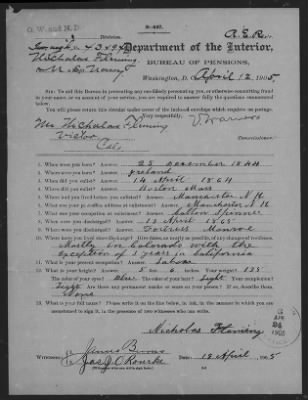 3-447.
O.W. and N.D.
3 Division.
A.E.R.
Department of the Interior,
Nicholas Fleming
BUREAU OF PENSIONS,
U.S. Navy
Washington, D. C., April 12, 1905
SIR: To aid this Bureau in preventing any one falsely personating you, or otherwise committing fraud
in your name, or on account of your service, you are required to answer fully the questions enumerated
below.
You will please return this circular under cover of the inclosed envelope which requires no postage.
Very respectfully,
V. Warner
Mr. Nicholas Fleming
Commissioner.
Victor
Colo
1. When were you born? Answer. 25 December 1844
2. Where were you born? Answer. Ireland
3. When did you enlist? Answer. 14 April 1864
4. Where did you enlist? Answer. Boston Mass
5. Where had you lived before you enlisted? Answer. Manchester N H
6. What was your post-office address at enlistment? Answer. Manchester N H
7. What was your occupation at enlistment? Answer. Cotton Spinner
8. When were you discharged? Answer. 13 April 1865
9. Where were you discharged? Answer. Fortress Monroe
10. Where have you lived since discharge? Give dates, as nearly as possible, of any changes of residence.
Mostly in Colorado with the
exception of 3 years in California
11. What is your present occupation? Answer. Labour
12. What is your height? Answer. 5 ft 6 inches. Your weight? Answer. 135
The color of your eyes? Blue. The color of your hair? Light. Your complexion?
Light. Are there any permanent marks or scars on your person? If so, describe them.
None
13. What is your full name? Please write it on the line below, in ink, in the manner in which you are
accustomed to sign it, in the presence of two witnesses who can write.
Nicholas Fleming
Witnesses:
James Burns
Jas J O'Rourke
Date, 18 April, 1905
APR
24
1905